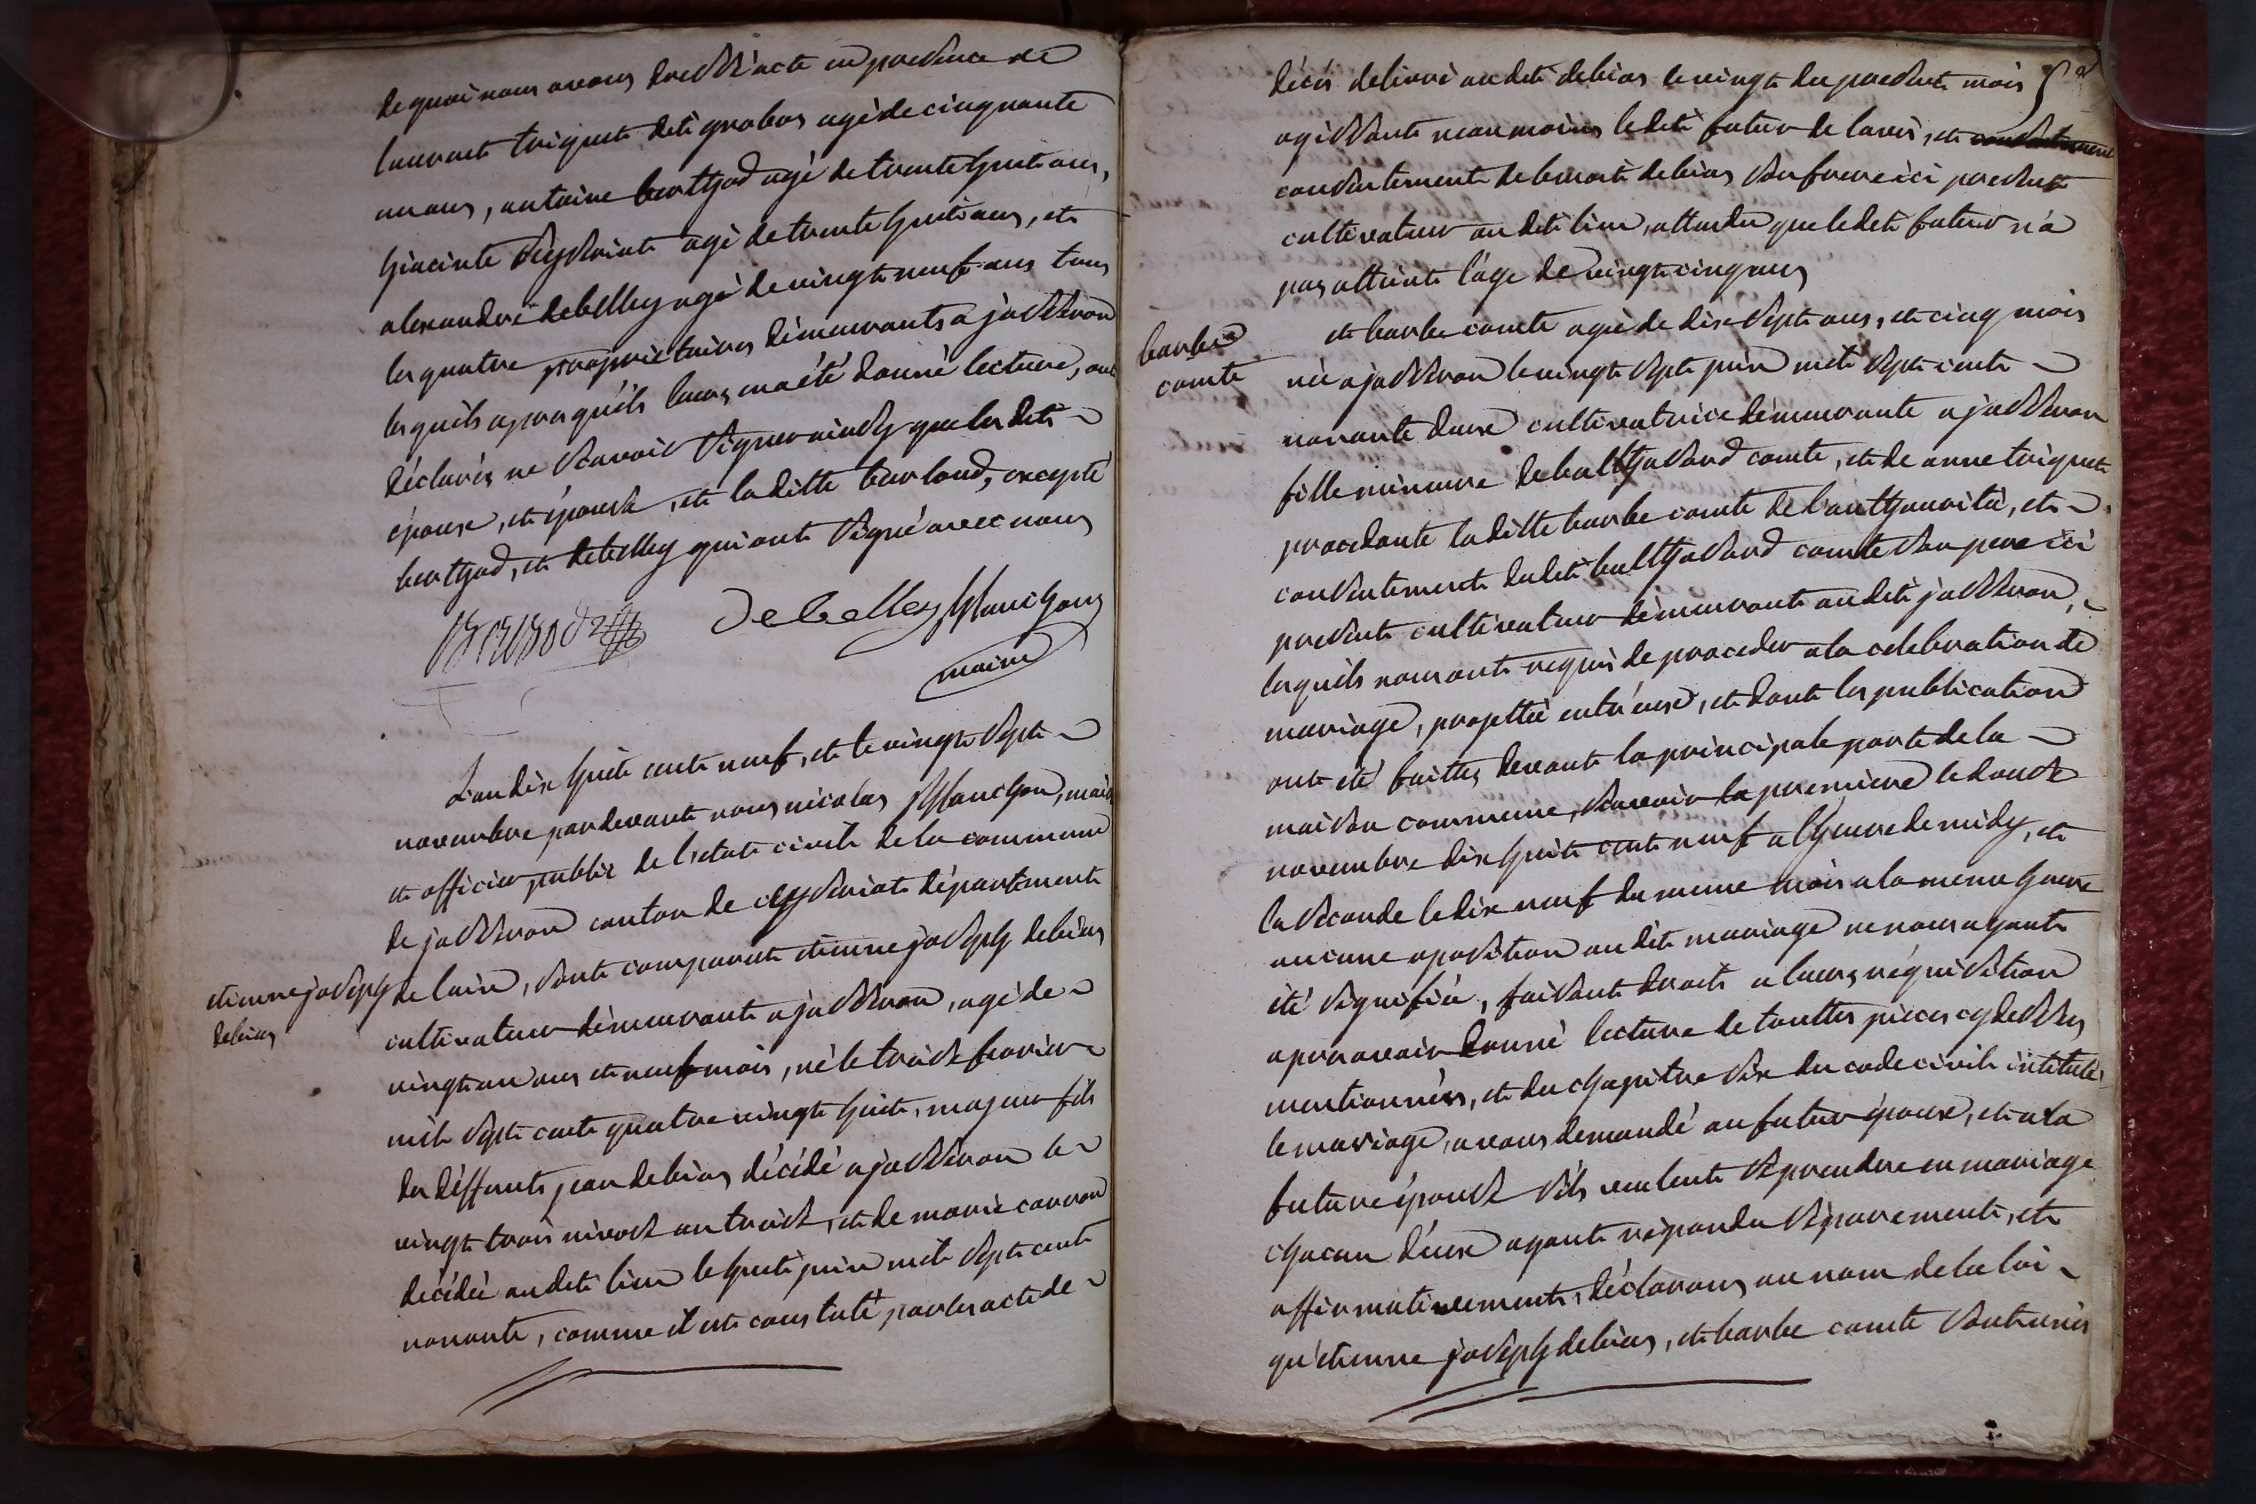 de quoi nous avons dressé acte en presence de
laurent triquet dit grobos agé de cinquante
un ans, antoine berthod agé de trente huit ans,
hiacinte Seysseriat agé de trente huit ans, et
alexandre debelley agé de vingt neuf ans tous
les quatre propriétaires démeurants a jasseron
lesquels apres qu'ils leurs en a été donné lecture, ont
déclarés ne scavoir signer ainsy que les dits
époux, et épouse, et la ditte burloud, excepté
berthod, et debelley qui ont signé avec nous
Debelley Blanchon
maire
L'an dix huit cent neuf, et le vingt sept
novembre pardevant nous nicolas Blanchon, maire
et officier public de l'etat civile de la commune
de jasseron canton de Ceyseriat département
de lain, sont comparut etienne joseph debias
etienne joseph
debias
cultivateur démeurant a jasseron, agé de
vingt un ans et neuf mois, né le treise fevrier
mil sept cent quatre vingt huit, majeur fils
des déffunts jean debias décédé a jasseron le
vingt trois nivose an treise, et de marie carron
decédée au dit lieu le huit juin mil sept cent
nonante, comme il est constaté par les acte de
décés delivré au dit debias le vingt du present mois
agissant neanmoins le dit futur de lavis, et
consentement de benoit debias son frere ici present
cultivateur au dit lieu, attendu que le dit futur n'a
pas atteint l'age de vingt cinq ans
barbe
comte
et barbe comte agée de dix sept ans, et cinq mois
née a jasseron le vingt sept juin mil sept cent
nonante deux cultivatrice démeurante a jasseron
fille mineure de balthasard comte, et de anne triquet
procedante la ditte barbe comte de l'authaurité, et
consentement du dit balthasard comte son pere ici
present cultivateur démeurant au dit jasseron,
lesquels nous ont requis de proceder a la celebration de
mariage, projettée entr'eux, et dont les publication
ont été faittes devant la principale porte de la
maison commune, scavoir la premiere le douse
novembre dix huit cent neuf a l'heure de midy, et
la seconde le dix neuf du meme mois a la meme heure
aucune oposition au dit mariage ne nous ayant
été signifiée, faisant droit a leurs réquisition
apres avoir donné lecture de touttes pieces cy dessus
mentionnées, et du chapitre six du code civile intitulé
le mariage, avons demandé au futur époux, et a la
future épouse s'ils veulent se prendre en mariage
chacun d'eux ayant répondu séparement, et
affirmativement, déclarons au nom de la loi
qu'etienne joseph debias, et barbe comte sont unis